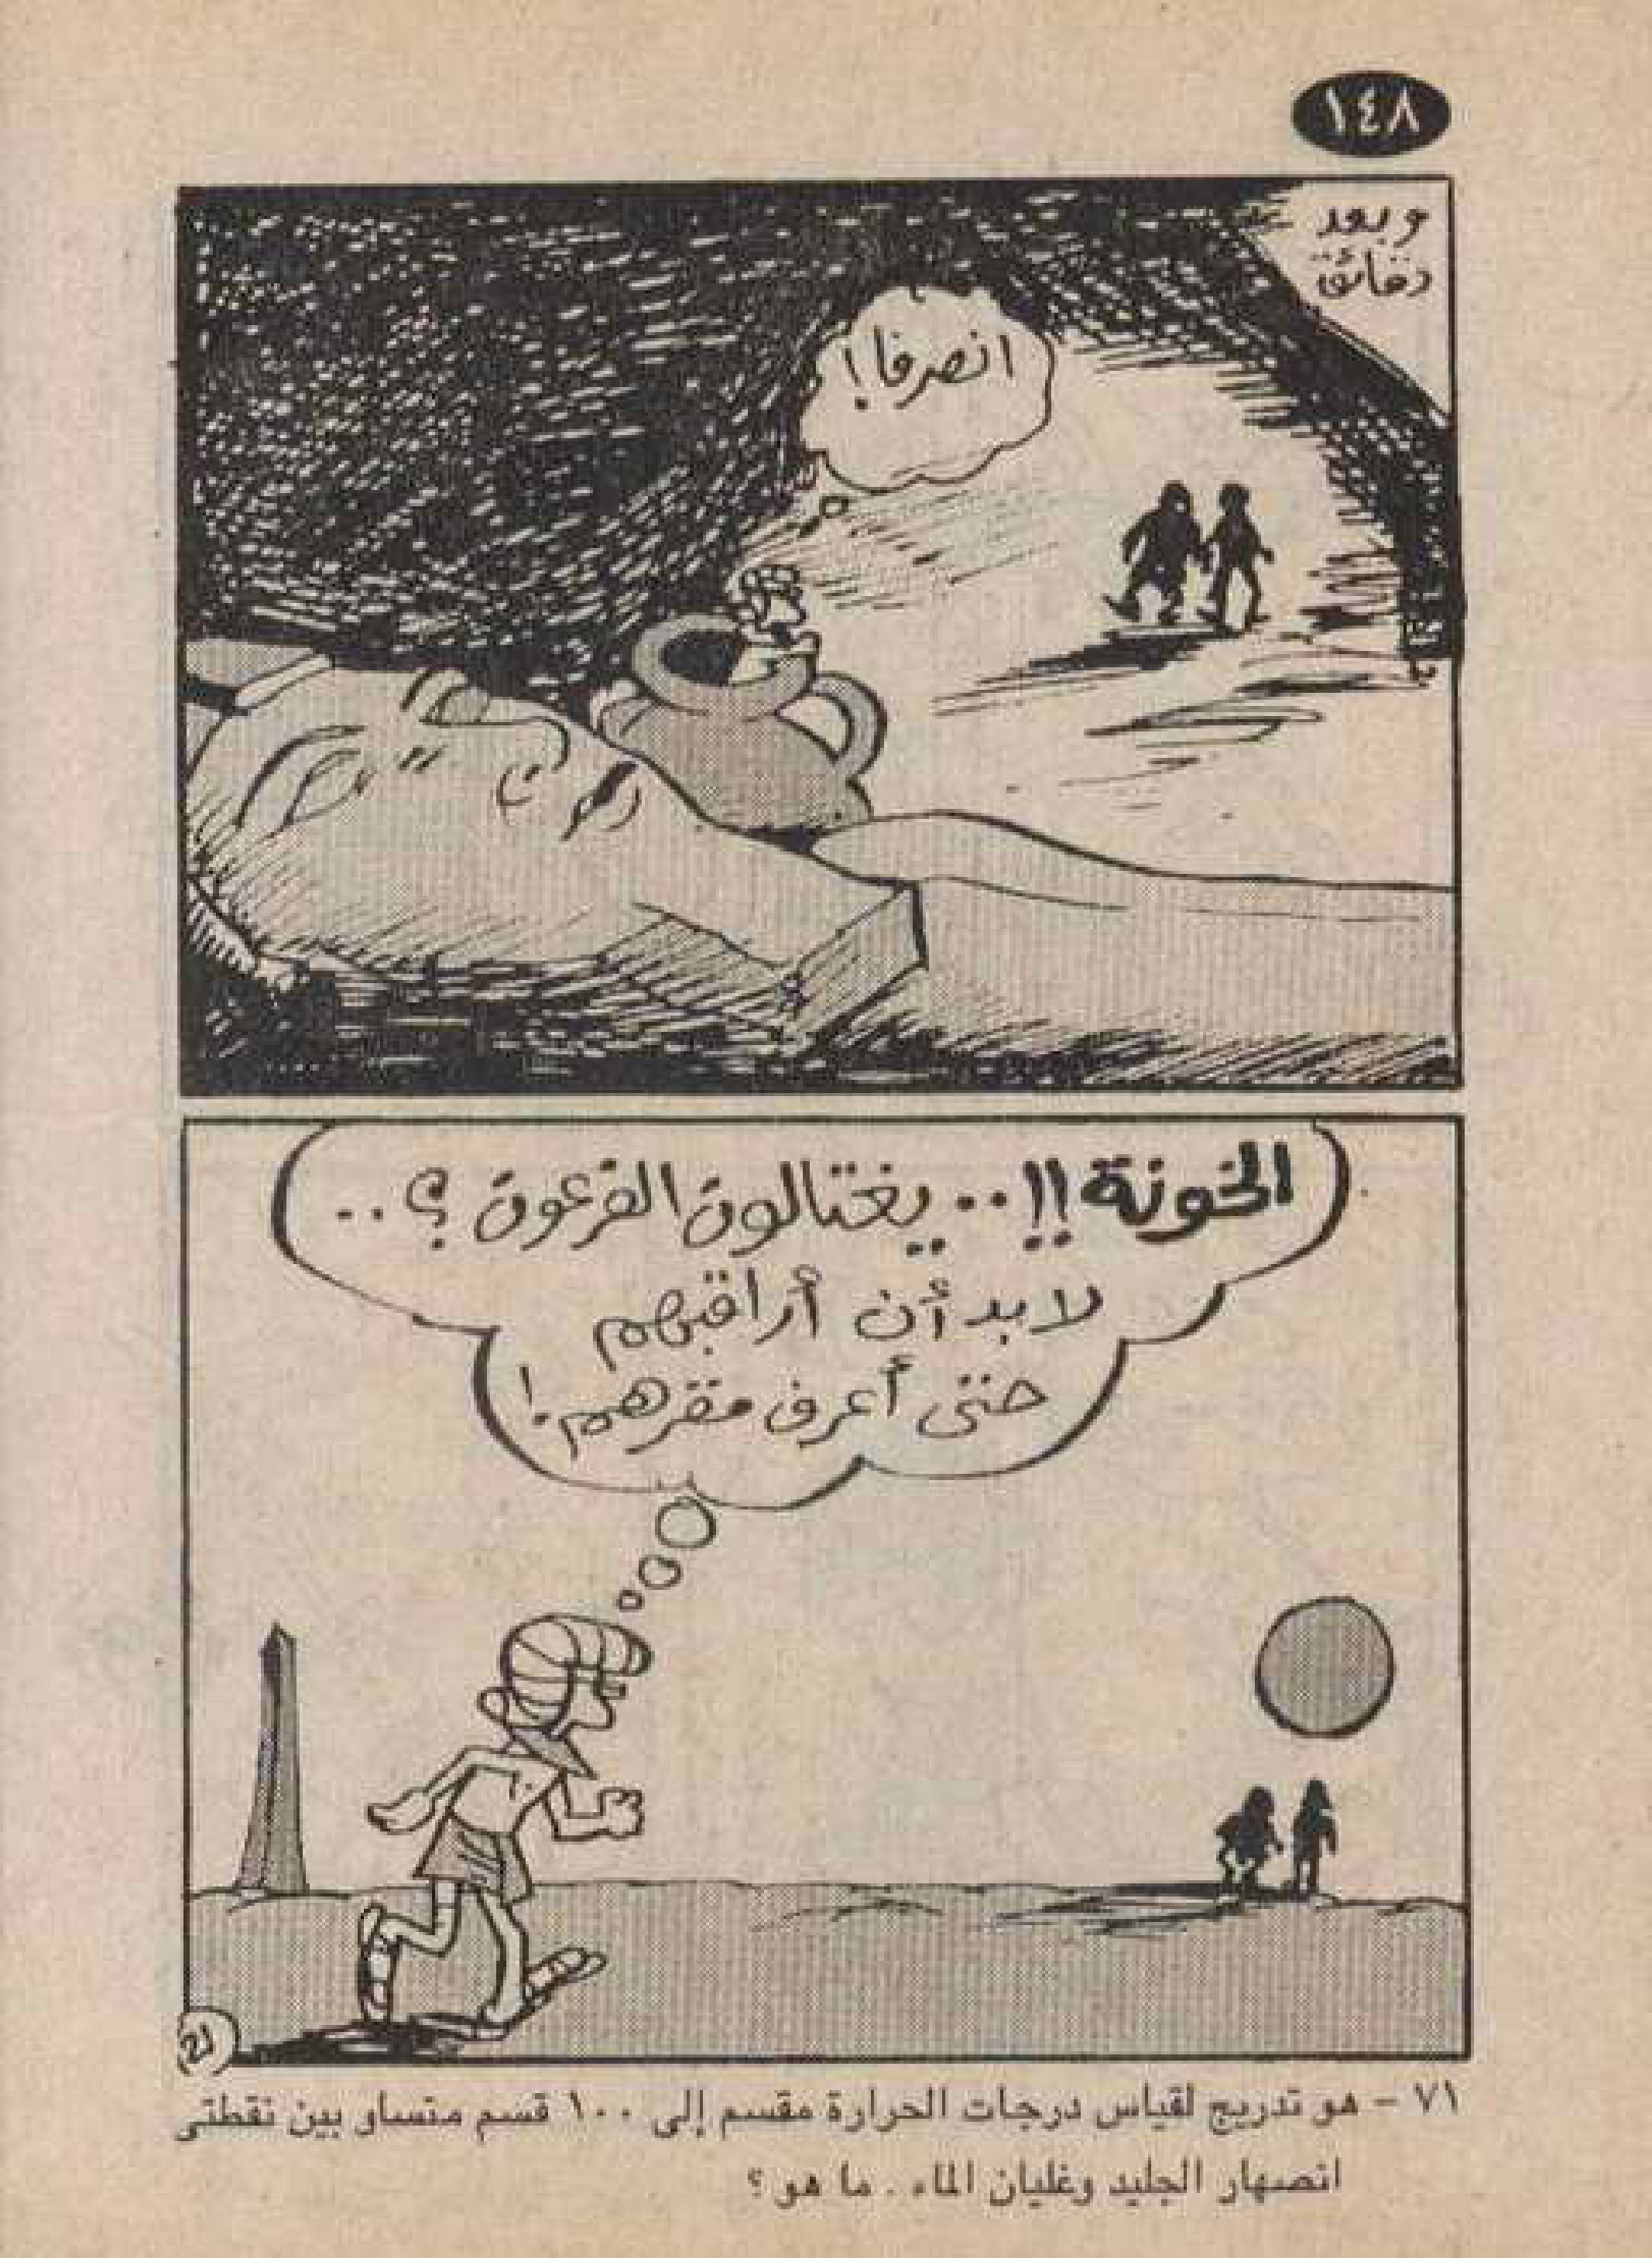 ١٤٨
وبعد
دقائق
انصرفا!
الخونة!!.. يغتالون الفرعون؟..
لابد أن أراقبهم
حتى أعرف مقرهم!
21
٧١ - هو تدريج لقياس درجات الحرارة مقسم إلى ١٠٠ قسم متساو بين نقطتى
انصهار الجليد وغليان الماء . ما هو ؟